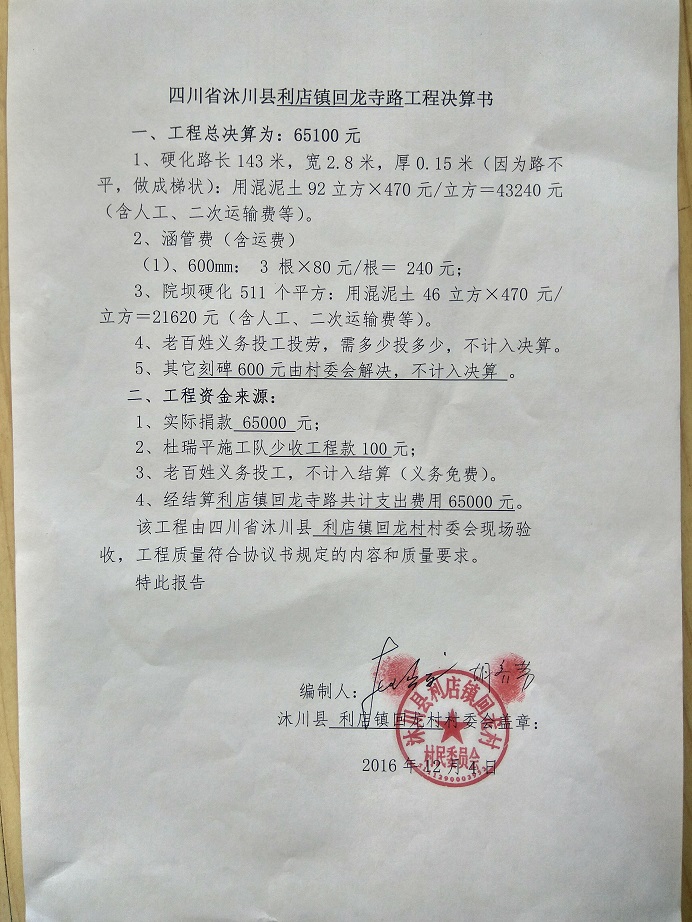 四川省沐川县利店镇回龙寺路工程决算书
一、工程总决算为：65100元
1、硬化路长143米，宽2.8米，厚0.15米（因为路不
平，做成梯状）：用混泥土92立方×470元/立方＝43240元
（含人工、二次运输费等）。
2、涵管费（含运费）
（1）、600mm： 3 根×80元/根＝ 240元；
3、院坝硬化511个平方：用混泥土46立方×470 元/
立方＝21620元（含人工、二次运输费等）。
4、老百姓义务投工投劳，需多少投多少，不计入决算。
5、其它刻碑600元由村委会解决，不计入决算 。
二、工程资金来源：
1、实际捐款 65000 元；
2、杜瑞平施工队少收工程款100元；
3、老百姓义务投工，不计入结算（义务免费）。
4、经结算利店镇回龙寺路共计支出费用65000元。
该工程由四川省沐川县 利店镇回龙村村委会现场验
收，工程质量符合协议书规定的内容和质量要求。
特此报告
编制人：
沐川县 利店镇回龙村村委会盖章：
2016年12月4日
沐川县利店镇回龙村
村民委员会